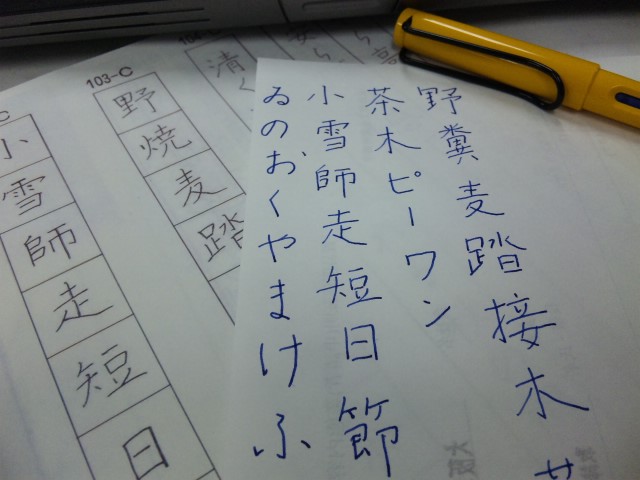 野糞麦踏接木
茶木ピーワン
小雪師走短日節
ゐのおくやまけふ
清く
103-C
野焼麦踏
小雪師走短日